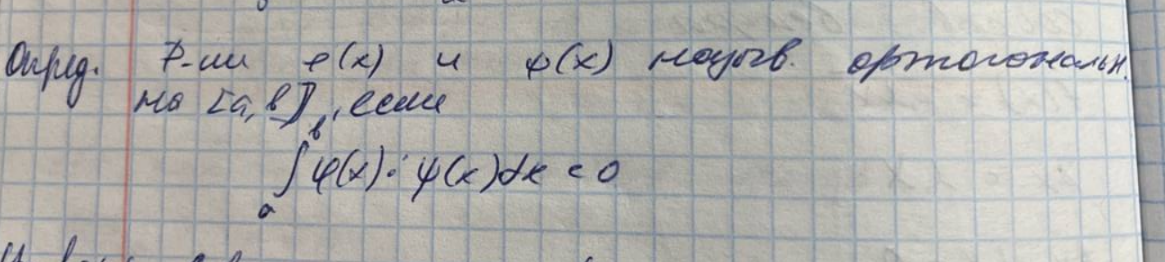 Опред. Ф-ии φ(x) и ψ(x) назыв. ортогональн.
на [a,b], если
∫ₐᵇ φ(x)·ψ(x)dx = 0